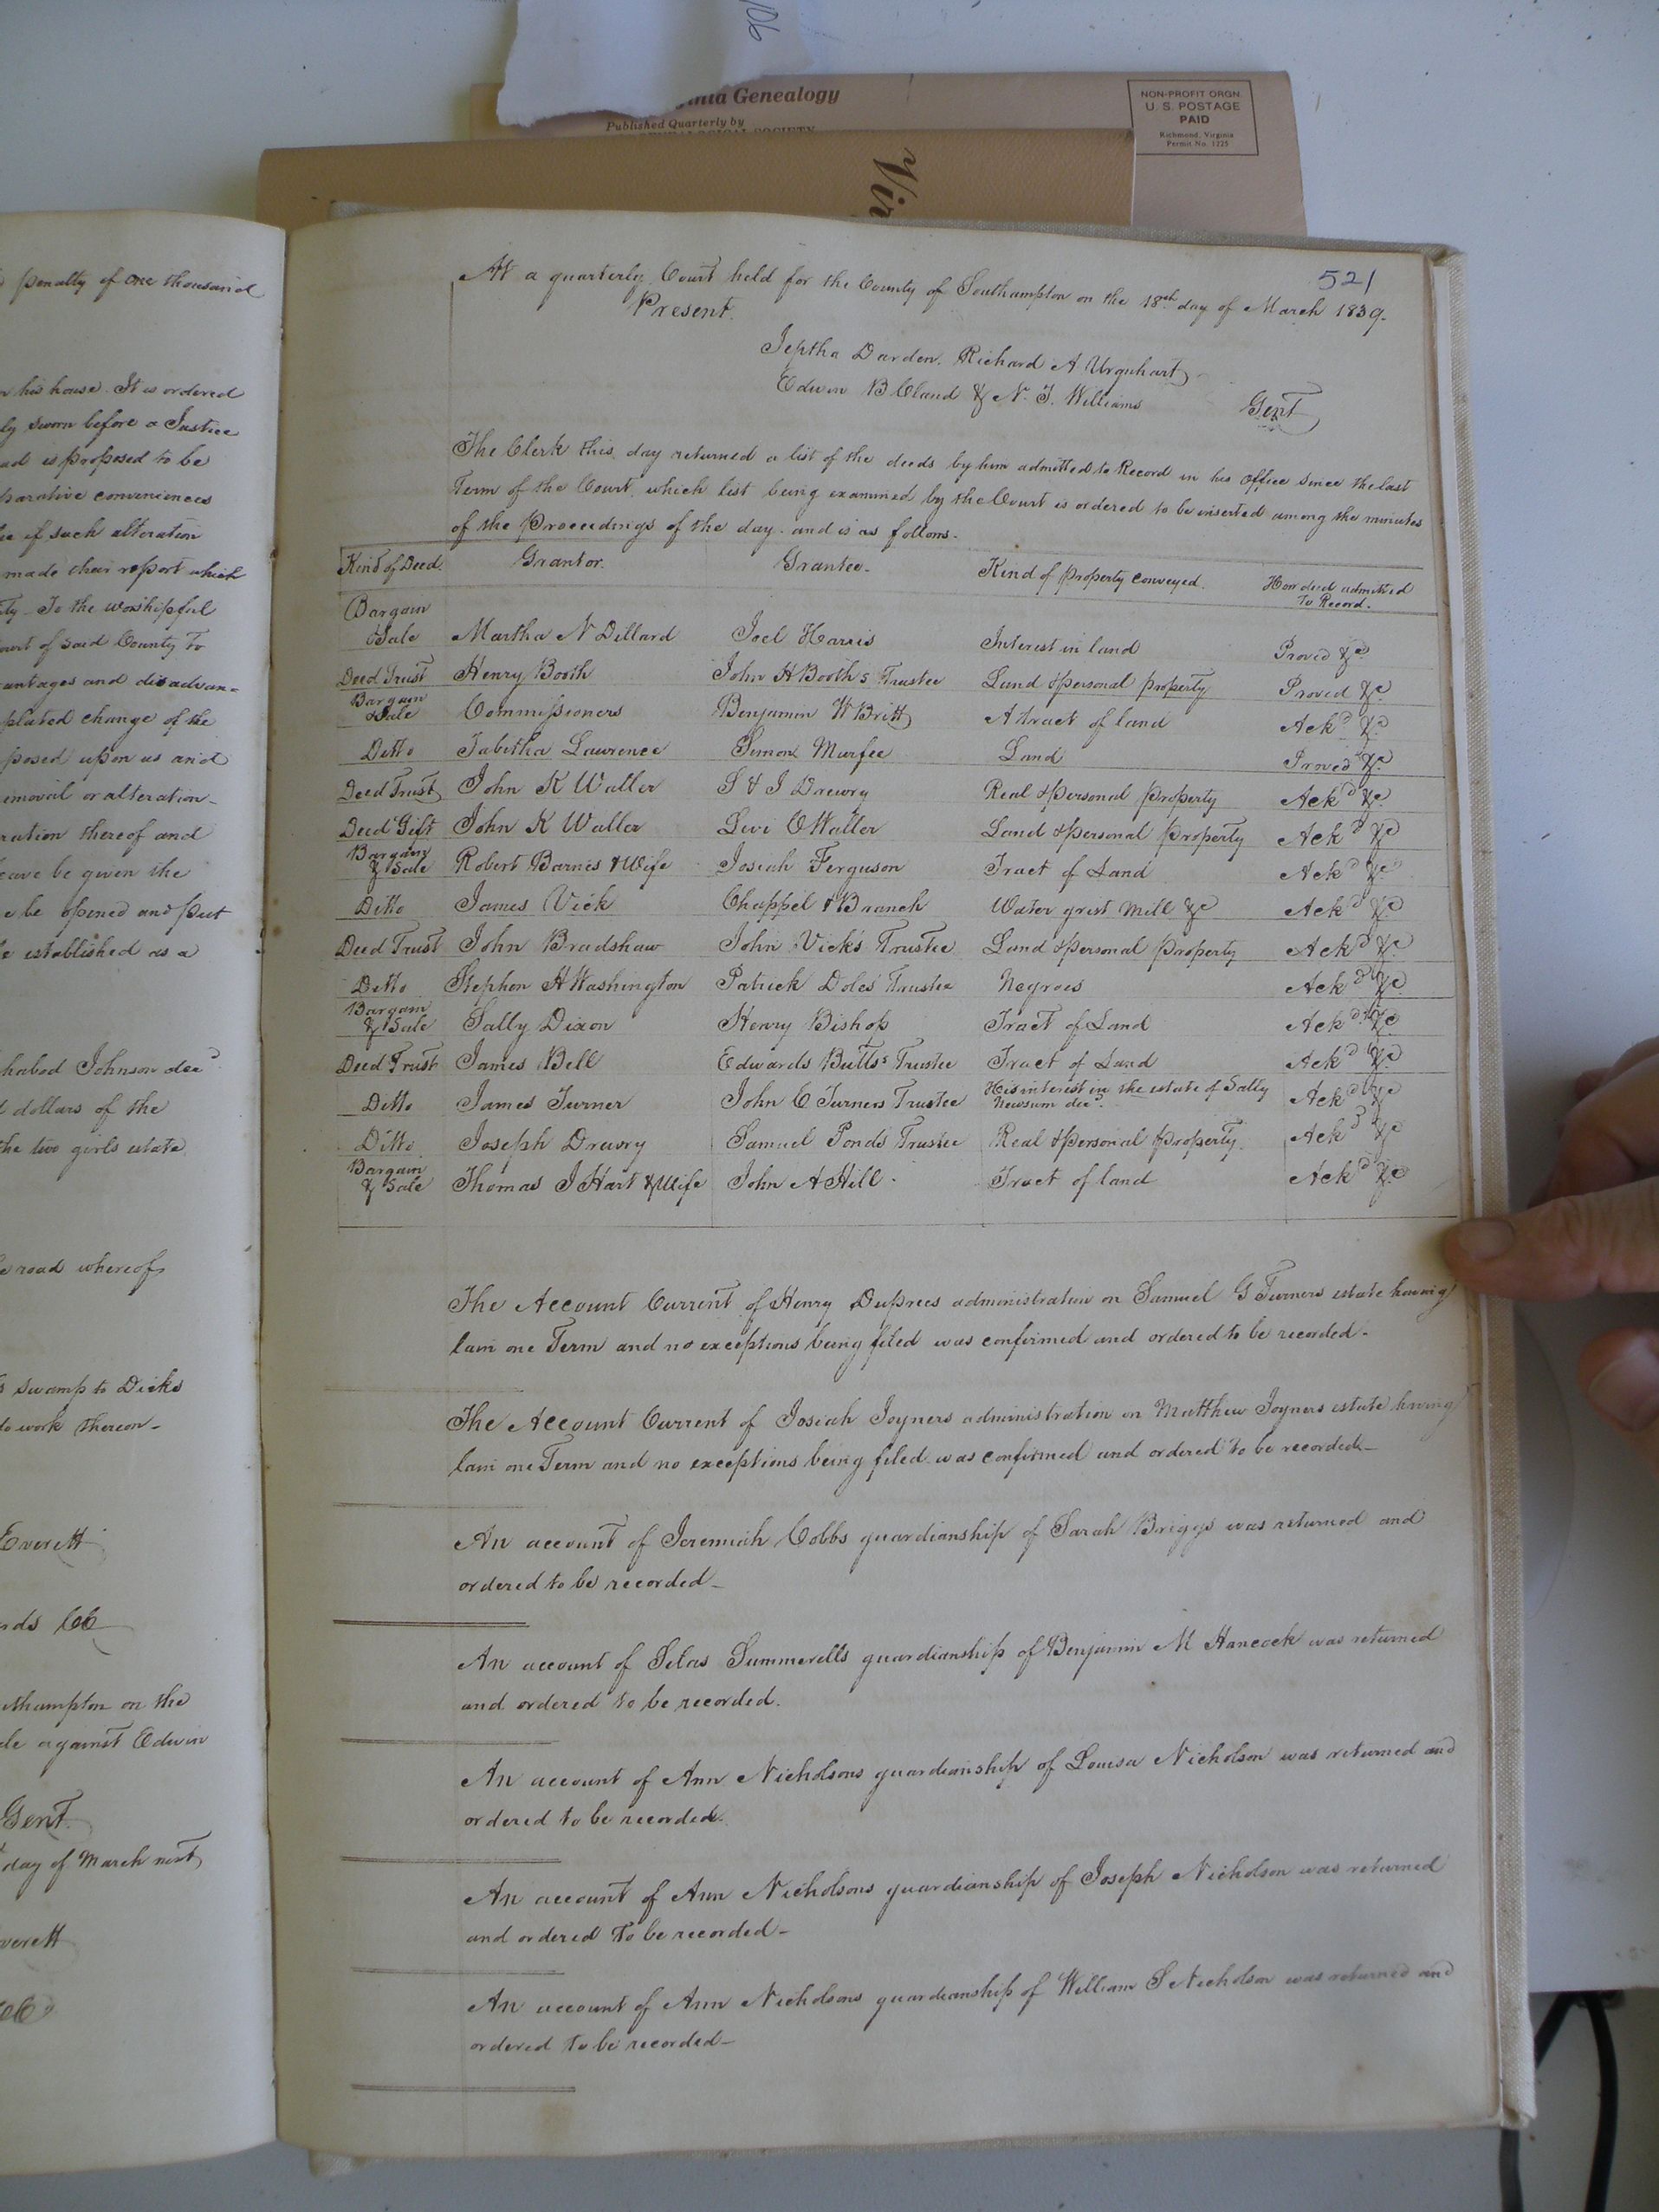 106
Virginia Genealogy
Published Quarterly by
NON-PROFIT ORGN.
U. S. POSTAGE
PAID
Richmond, Virginia
Permit No. 1225
Vir
penalty of one thousand
his house. It is ordered
sworn before a Justice
is proposed to be
conveniences
if such alteration
made their report which
To the worshipful
of said County to
and disadvan=
change of the
upon us and
or alteration
thereof and
be given the
be opened and put
established as a
Johnson decd
dollars of the
the two girls estate
road whereof
swamp to Dicks
to work thereon -
Everett
on the
against Edwin
Gent.
day of March next
521
At a quarterly Court held for the County of Southampton on the 18th day of March 1839.
Present.
Jeptha Darden. Richard A Urquhart
Edwin B Claud & N. T. Williams
Gent
The Clerk this day returned a list of the deeds by him admitted to Record in his office since the last
Term of the Court, which list being examined by the Court is ordered to be inserted among the minutes
of the Proceedings of the day. and is as follows.
Kind of Deed. Grantor. Grantee. Kind of property conveyed. How deed admitted
to Record.
Bargain
Sale Martha N Dillard Joel Harris Interest in land Proved &c
Deed Trust Henry Booth John H Booth's Trustee Land & personal property Proved &c
Bargain
& Sale Commissioners Benjamin W Britt A tract of land Ackd &c
Ditto Tabitha Lawrence Simon Murfee Land Proved &c
Deed Trust John K Waller S & J Drewry Real & personal property Ackd &c
Deed Gift John K Waller Levi Waller Land & personal property Ackd &c
Bargain
& Sale Robert Barnes & Wife Josiah Ferguson Tract of Land Ackd &c
Ditto James Vick Chappel & Branch Water grist Mill &c Ackd &c
Deed Trust John Bradshaw John Vick's Trustee Land & personal property Ackd &c
Ditto Stephen H Washington Patrick Doles Trustee Negroes Ackd &c
Bargain
& Sale Sally Dixon Henry Bishop Tract of Land Ackd &c
Deed Trust James Bell Edwards Butts Trustee Tract of Land Ackd &c
Ditto James Turner John C Turners Trustee His interest in the estate of Sally
Newsum decd. Ackd &c
Ditto Joseph Drewry Samuel Pond's Trustee Real & personal property. Ackd &c
Bargain
& Sale Thomas J Hart & Wife John A Hill. Tract of land Ackd &c
The Account Current of Henry Duprees administration on Samuel G Turners estate having
lain one Term and no exceptions being filed was confirmed and ordered to be recorded.
The Account Current of Josiah Joyners administration on Matthew Joyners estate having
lain one Term and no exceptions being filed was confirmed and ordered to be recorded-
An account of Jeremiah Cobbs guardianship of Sarah Briggs was returned and
ordered to be recorded-
An account of Silas Summerells guardianship of Benjamin M Hancock was returned
and ordered to be recorded.
An account of Ann Nicholsons guardianship of Louisa Nicholson was returned and
ordered to be recorded.
An account of Ann Nicholsons guardianship of Joseph Nicholson was returned
and ordered to be recorded-
An account of Ann Nicholsons guardianship of William S Nicholson was returned and
ordered to be recorded-